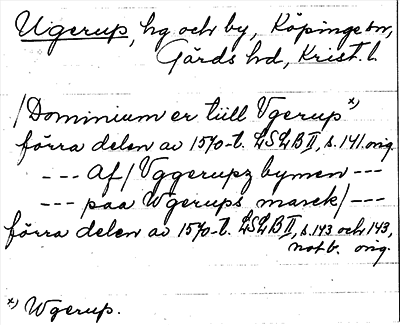 Ugerup, hg och by, Köpinge sn,
Gärds hd, Krist. l.
/Dominium er tiill Vgerup*)
förra delen av 1570-t. LSLB II, s. 141. orig.
--- Af/Vggerupz bymen ---
--- paa Wgerups marck/---
förra delen av 1570-t. LSLB II, s. 143 och 143,
not b. orig.
*) Wgerup.